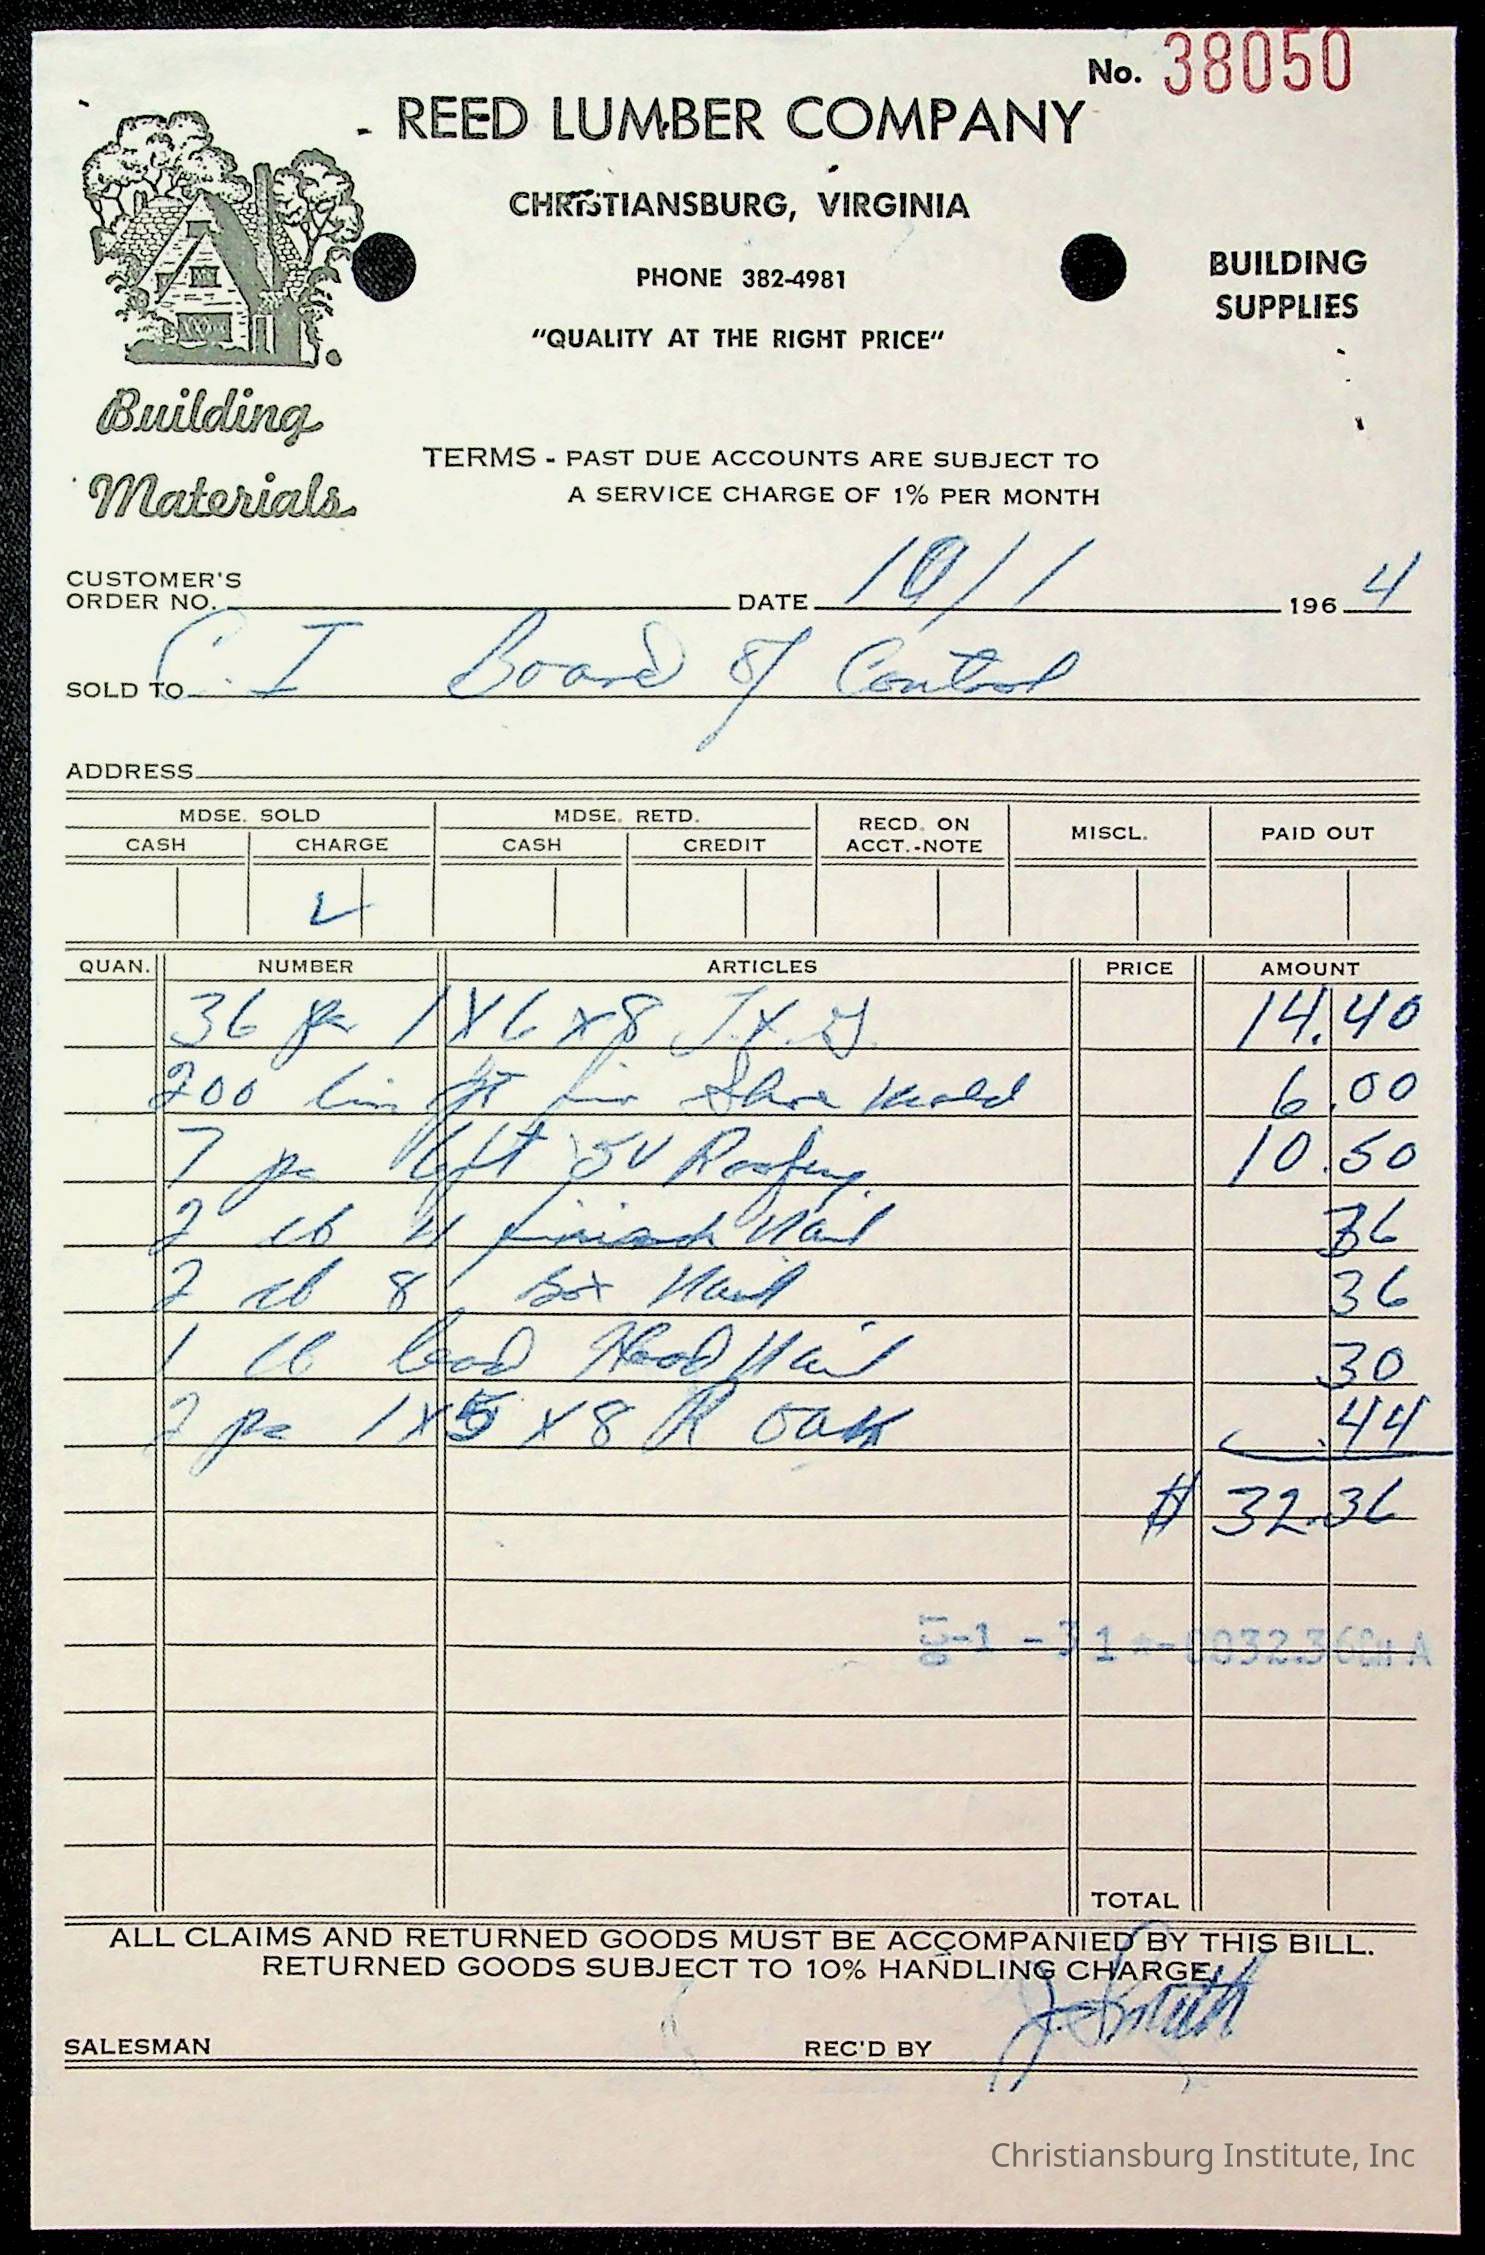 No. 38050
REED LUMBER COMPANY
CHRISTIANSBURG, VIRGINIA
PHONE 382-4981
"QUALITY AT THE RIGHT PRICE"
BUILDING
SUPPLIES
Building
Materials
TERMS - PAST DUE ACCOUNTS ARE SUBJECT TO
A SERVICE CHARGE OF 1% PER MONTH
CUSTOMER'S
ORDER NO. DATE 10/1 1964
SOLD TO C. I Board of Control
ADDRESS
MDSE. SOLD MDSE. RETD. RECD. ON ACCT.-NOTE MISCL. PAID OUT
CASH CHARGE CASH CREDIT
QUAN. NUMBER ARTICLES PRICE AMOUNT
36 pc 1x6x8 T.&.G. 14.40
200 lin ft fir Shoe Mold 6.00
7 pc 6ft 5V Roofing 10.50
2 lb 4 finish Nail 36
2 lb 8 Box Nail 36
1 lb lead Head Nail 30
2 pc 1x5x8 R oak .44
$ 32.36
-1 -31 0032.36CH A
TOTAL
ALL CLAIMS AND RETURNED GOODS MUST BE ACCOMPANIED BY THIS BILL.
RETURNED GOODS SUBJECT TO 10% HANDLING CHARGE.
SALESMAN REC'D BY J. Smith
Christiansburg Institute, Inc